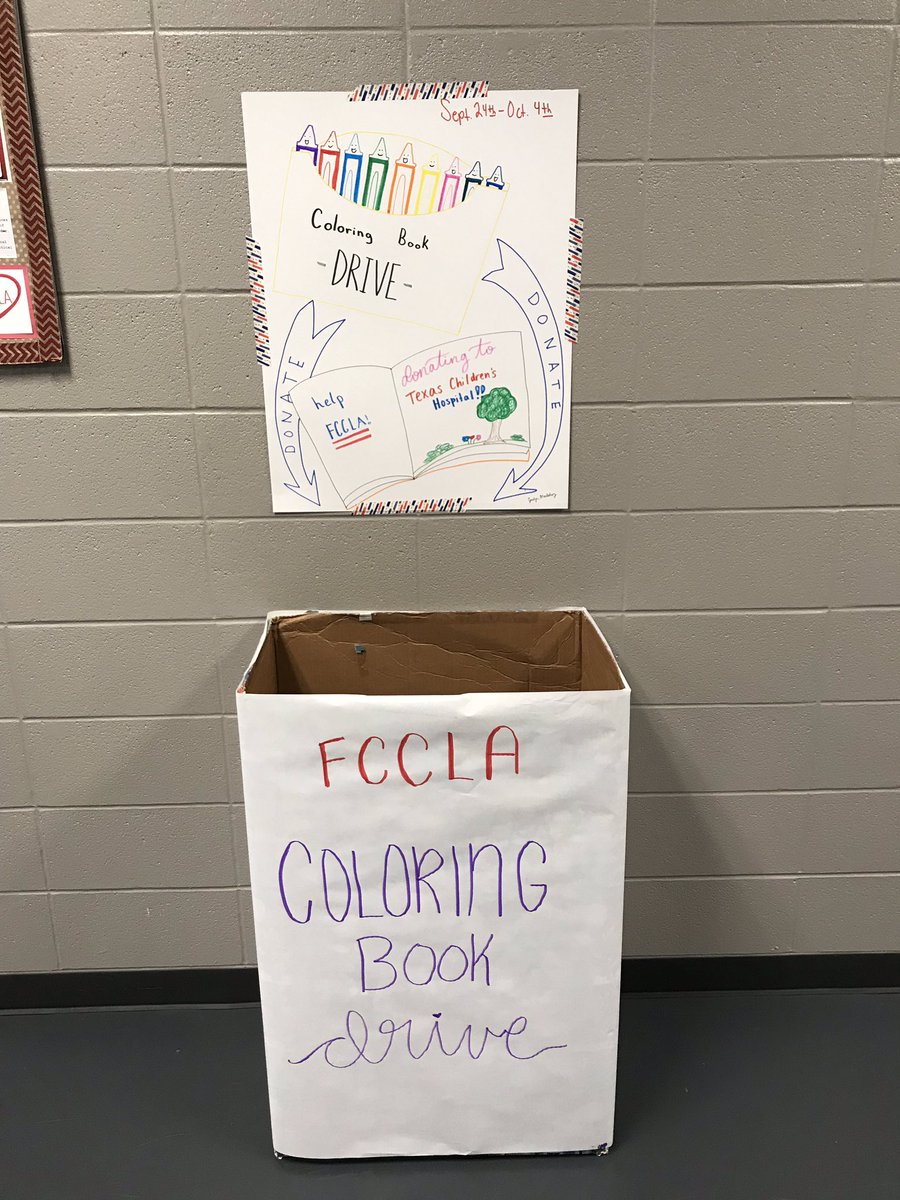 Sept. 24th - Oct. 4th
Coloring Book
- DRIVE -
DONATE
DONATE
help
FCCLA!
donating to
Texas Children's
Hospital!
FCCLA
COLORING
BOOK
drive